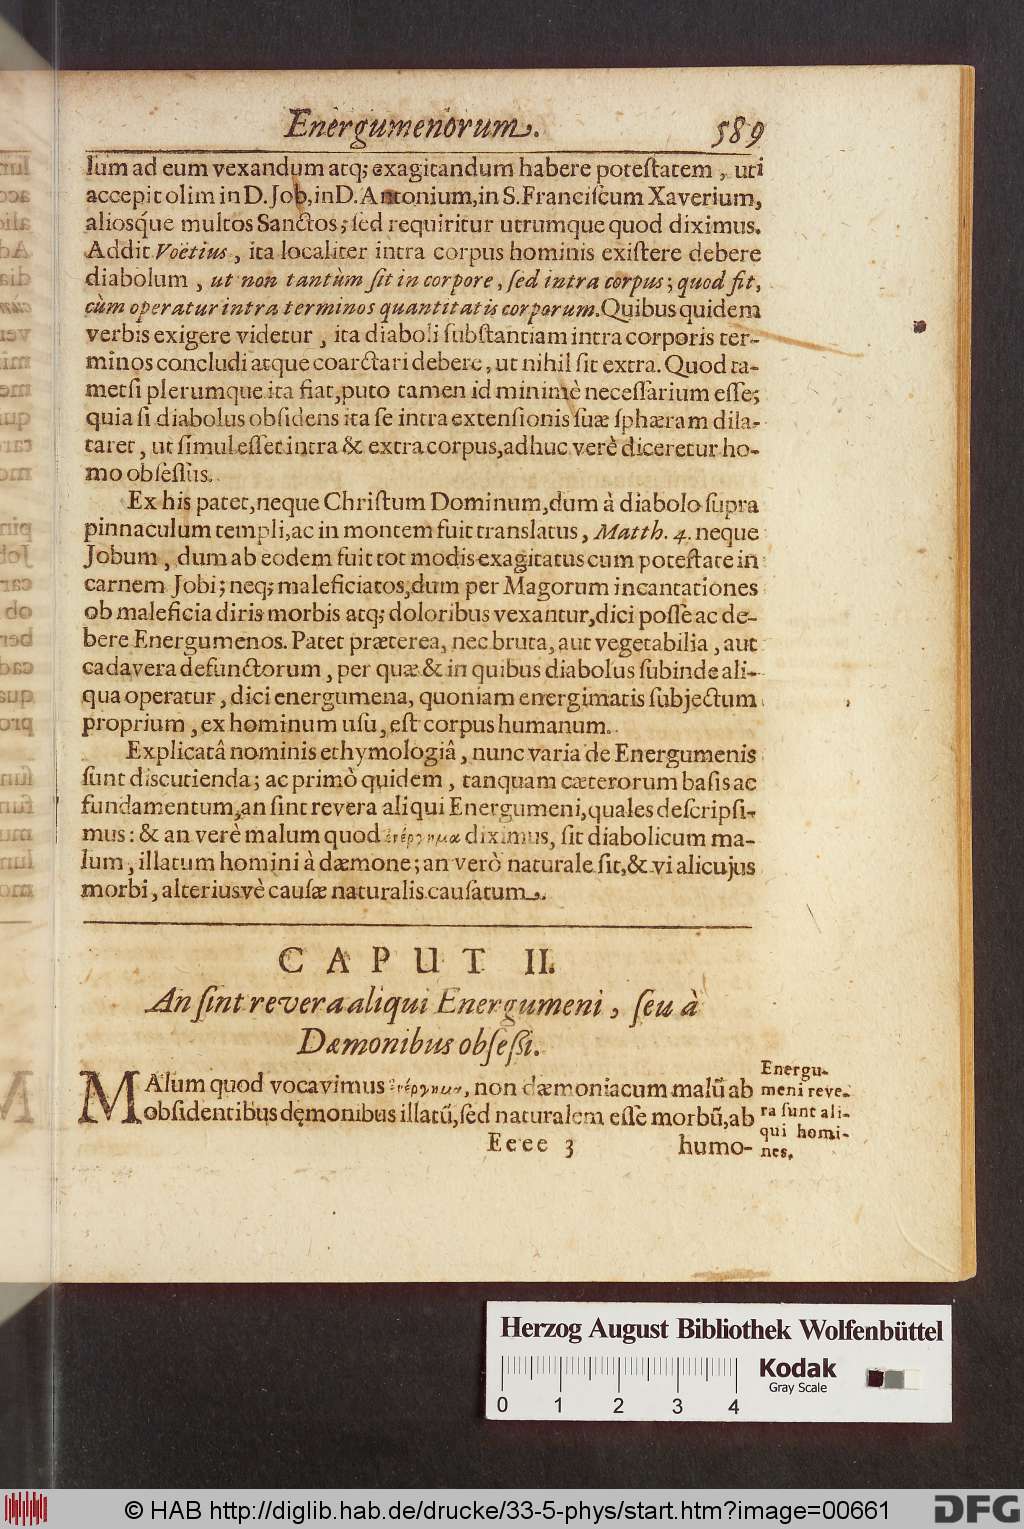 Energumenorum. 589
lum ad eum vexandum atq; exagitandum habere poteſtatem, uti
accepit olim in D. Job, in D. Antonium, in S. Franciſcum Xaverium,
alioſq́ue multos Sanctos; ſed requiritur utrumque quod diximus.
Addit Voëtius, ita localiter intra corpus hominis exiſtere debere
diabolum, ut non tantùm ſit in corpore, ſed intra corpus; quod fit,
cùm operatur intra terminos quantitatis corporum. Quibus quidem
verbis exigere videtur, ita diaboli ſubſtantiam intra corporis ter-
minos concludi atque coarctari debere, ut nihil ſit extra. Quod ta-
metſi plerumque ita fiat, puto tamen id minimè neceſſarium eſſe;
quia ſi diabolus obſidens ita ſe intra extenſionis ſuæ ſphæram dila-
taret, ut ſimul eſſet intra & extra corpus, adhuc verè diceretur ho-
mo obſeſſus.
Ex his patet, neque Chriſtum Dominum, dum à diabolo ſupra
pinnaculum templi, ac in montem fuit translatus, Matth. 4. neque
Jobum, dum ab eodem fuit tot modis exagitatus cum poteſtate in
carnem Jobi; neq; maleficiatos, dum per Magorum incantationes
ob maleficia diris morbis atq; doloribus vexantur, dici poſſe ac de-
bere Energumenos. Patet præterea, nec bruta, aut vegetabilia, aut
cadavera defunctorum, per quæ & in quibus diabolus ſubinde ali-
qua operatur, dici energumena, quoniam energimatis ſubjectum
proprium, ex hominum uſu, eſt corpus humanum.
Explicatâ nominis ethymologiâ, nunc varia de Energumenis
ſunt discutienda; ac primò quidem, tanquam cæterorum baſis ac
fundamentum, an ſint revera aliqui Energumeni, quales deſcripſi-
mus: & an verè malum quod ἐνέργημα diximus, ſit diabolicum ma-
lum, illatum homini à dæmone; an verò naturale ſit, & vi alicujus
morbi, alteriusvè cauſæ naturalis cauſatum.
CAPUT II.
An ſint revera aliqui Energumeni, ſeu à
Dæmonibus obſeſſi.
MAlum quod vocavimus ἐνέργημα, non dæmoniacum malũ ab
obſidentibus dęmonibus illatũ, ſed naturalem eſſe morbũ, ab
Energu-
meni reve-
ra ſunt ali-
qui homi-
nes.
Eeee 3 humo-
Herzog August Bibliothek Wolfenbüttel
Kodak
Gray Scale
0 1 2 3 4
© HAB http://diglib.hab.de/drucke/33-5-phys/start.htm?image=00661
DFG